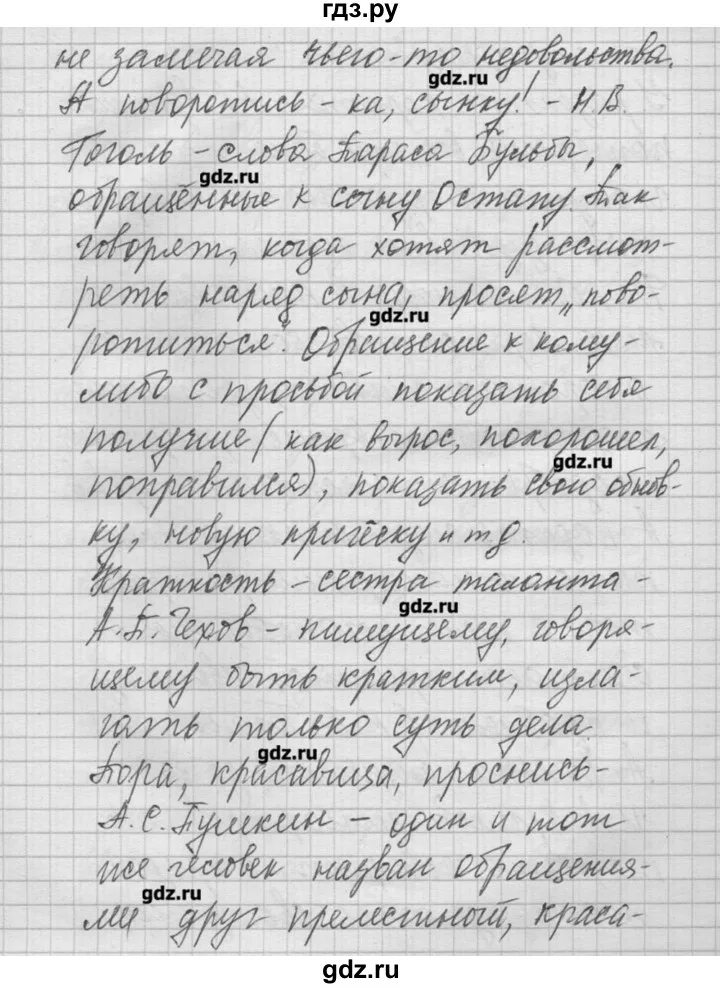 гдз.ру
не замечая чьего-то недовольства.
gdz.ru
А поворотись-ка, сынку! - Н.В.
Гоголь - слова Тараса Бульбы,
gdz.ru
обращённые к сыну Остапу. Так
говорят, когда хотят рассмот-
реть наряд сына, просят „пово-
gdz.ru
ротиться". Обращение к кому-
либо с просьбой показать себя
получше (как вырос, похорошел,
gdz.ru
поправился), показать свою обнов-
ку, новую причёску и т д.
Краткость - сестра таланта -
gdz.ru
А.П. Чехов - пишущему, говоря-
щему быть кратким, изла-
гать только суть дела.
gdz.ru
Пора, красавица, проснись-
А.С. Пушкин - один и тот
же человек назван обращения-
gdz.ru
ми друг прелестный, краса-
gdz.ru